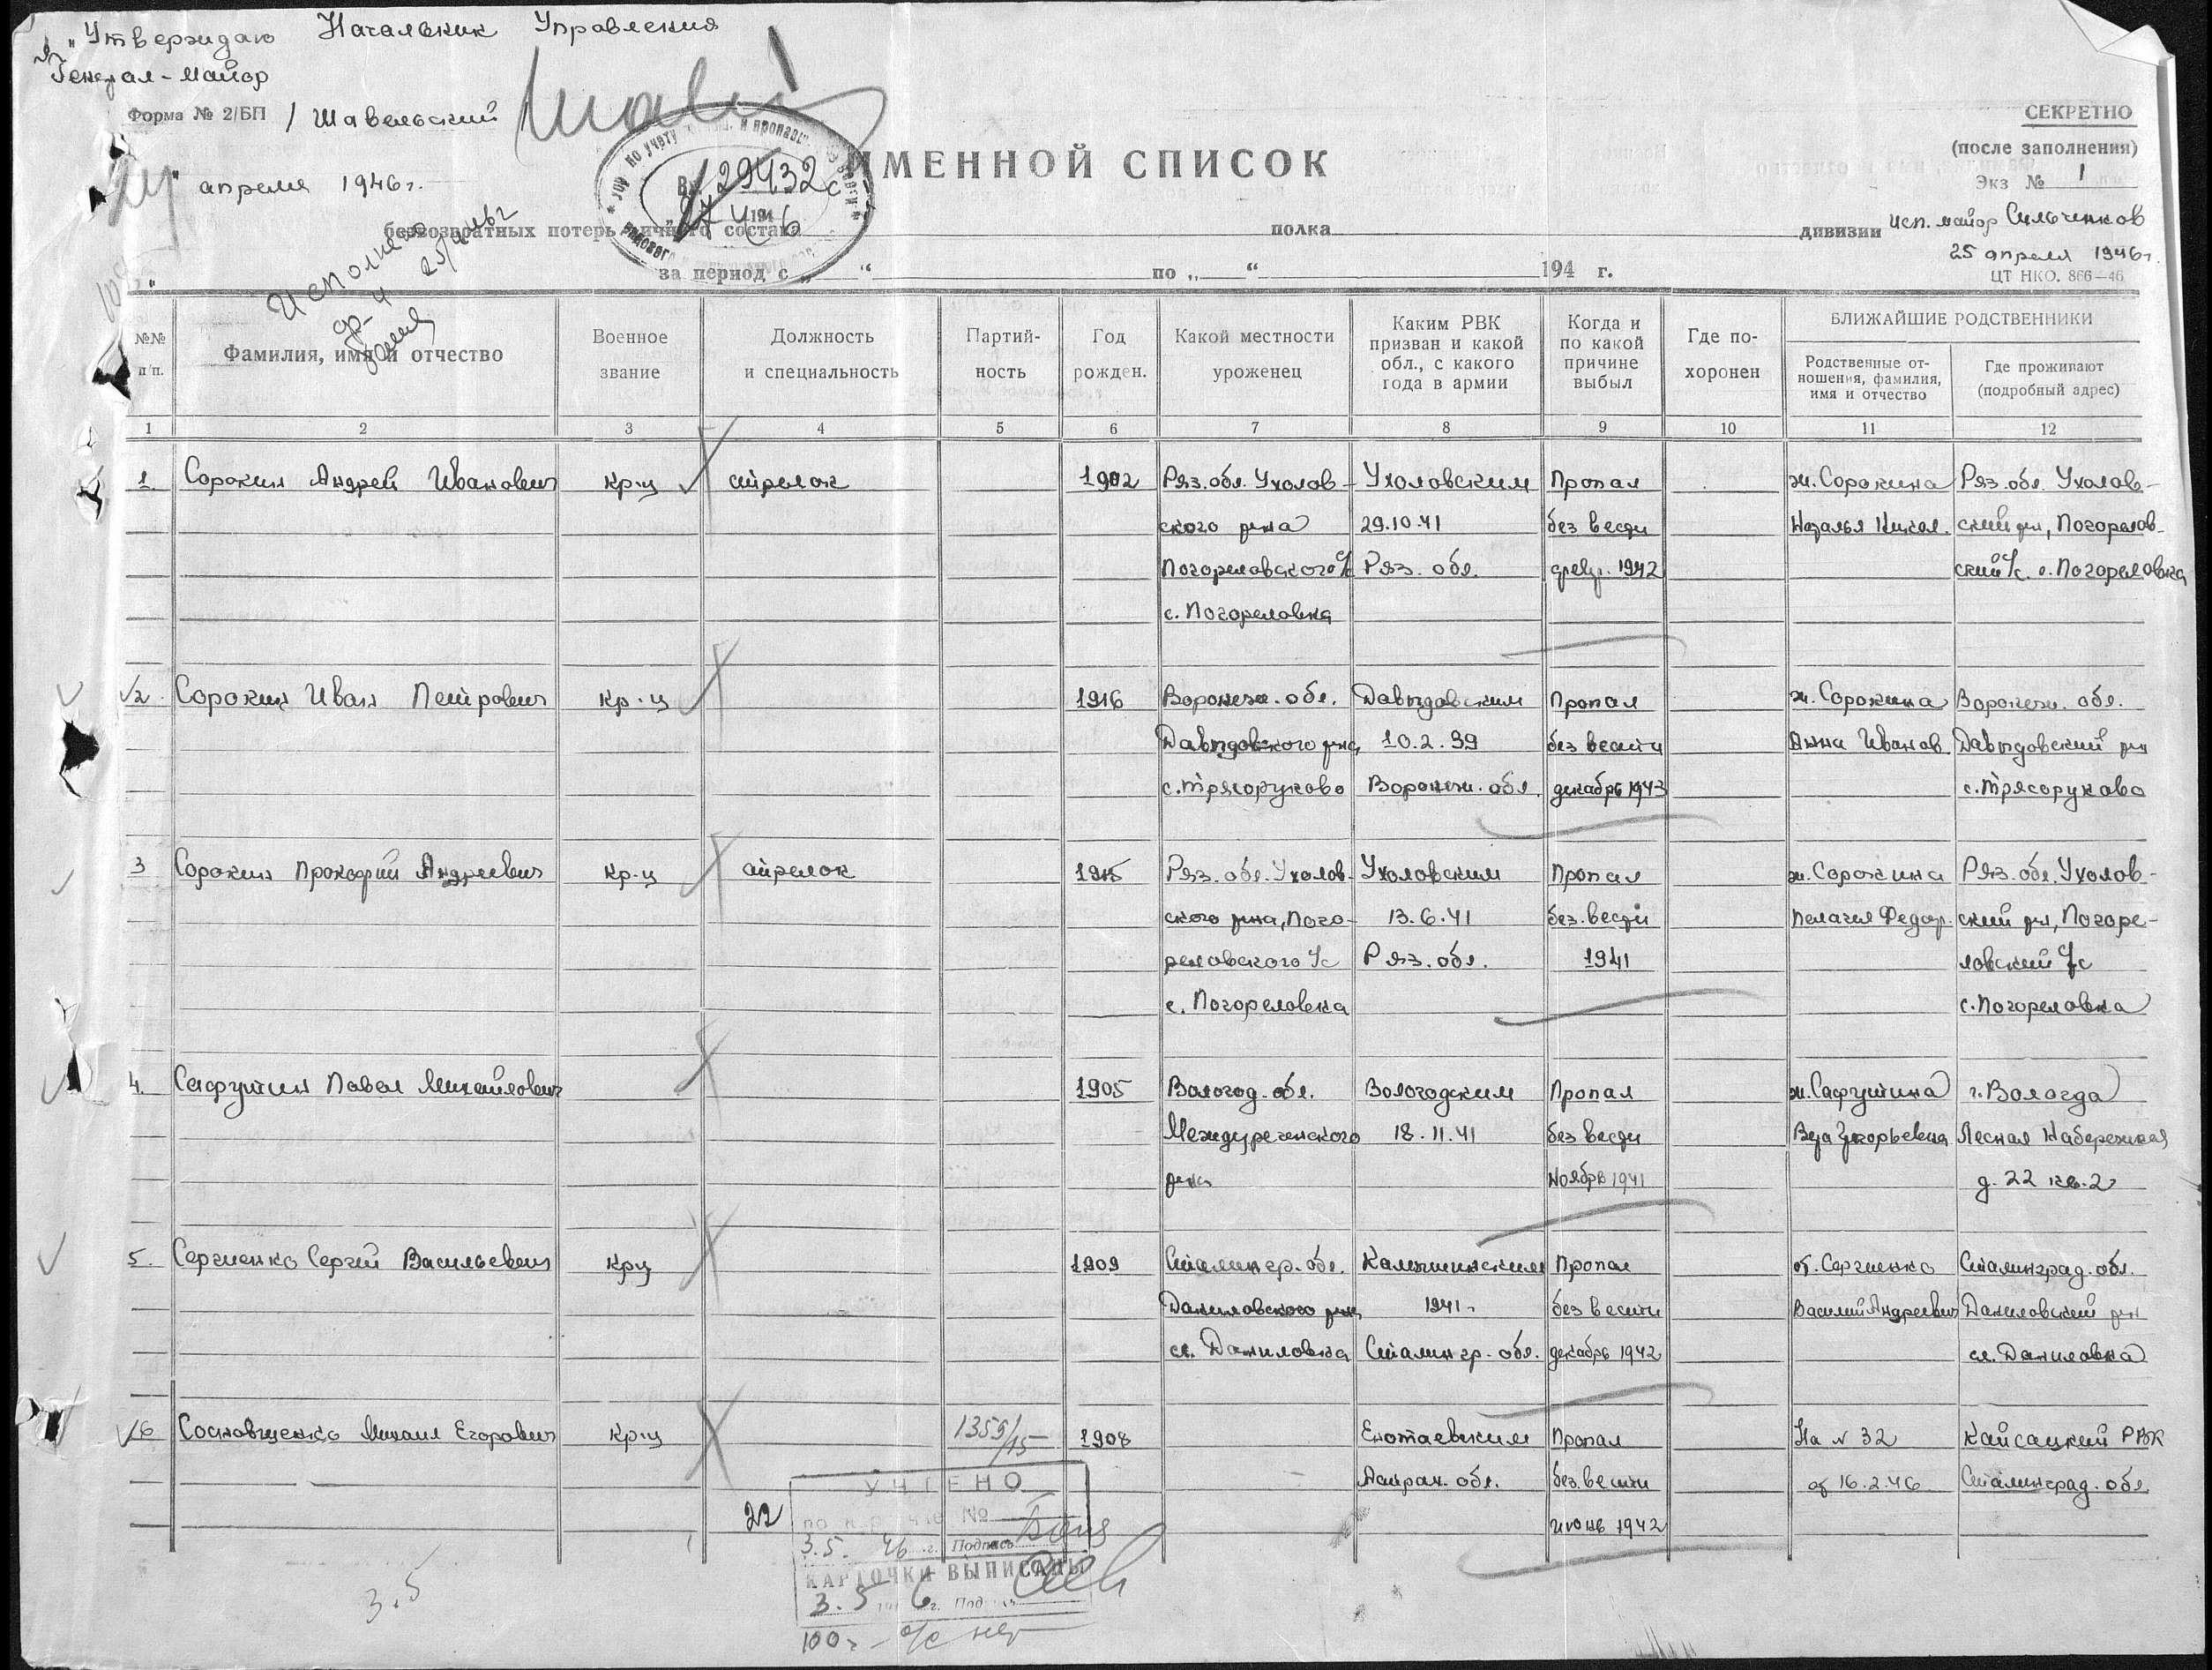 "Утверждаю Начальник Управления
Генерал-майор
Форма № 2/БП / Шавельский
апреля 1946 г.
Исполнено
25/
Вх. 29432с
27 4 1946
СЕКРЕТНО
(после заполнения)
Экз № 1
исп. майор Сильченков
25 апреля 1946 г.
ЦТ НКО. 866—46
ИМЕННОЙ СПИСОК
безвозвратных потерь личного состава полка дивизии
за период с „ “ по „ “ 194 г.
№№ п/п.
Фамилия, имя и отчество
Военное звание
Должность и специальность
Партийность
Год рожден.
Какой местности уроженец
Каким РВК призван и какой обл., с какого года в армии
Когда и по какой причине выбыл
Где похоронен
БЛИЖАЙШИЕ РОДСТВЕННИКИ
Родственные отношения, фамилия, имя и отчество
Где проживают (подробный адрес)
1 2 3 4 5 6 7 8 9 10 11 12
1. Сорокин Андрей Иванович кр-ц стрелок 1902 Ряз. обл. Ухолов- Ухоловским Пропал ж. Сорокина Ряз. обл. Ухолов-
ского р-на 29.10.41 без вести Наталья Никол. ский р-н, Погорелов-
Погореловского с/с Ряз. обл. февр. 1942 ский с/с. с. Погореловка
с. Погореловка
2. Сорокин Иван Петрович кр-ц 1916 Воронеж. обл. Давыдовским Пропал ж. Сорокина Воронеж. обл.
Давыдовского р-на 10.2.39 без вести Анна Иванов. Давыдовский р-н
с. Трясоруково Воронеж. обл. декабрь 1943 с. Трясоруково
3 Сорокин Прокофий Андреевич кр-ц стрелок 1915 Ряз. обл. Ухолов- Ухоловским Пропал ж. Сорокина Ряз. обл. Ухолов-
ского р-на, Пого- 13.6.41 без вести Пелагея Федор. ский р-н, Погоре-
реловского с/с Ряз. обл. 1941 ловский с/с
с. Погореловка с. Погореловка
4. Сафутин Павел Михайлович 1905 Вологод. обл. Вологодским Пропал ж. Сафутина г. Вологда
Междуреченского 18.11.41 без вести Вера Григорьевна Лесная Набережная
р-на ноябрь 1941 д. 22 кв. 2
5. Сергиенко Сергей Васильевич кр-ц 1909 Сталингр. обл. Камышинским Пропал от. Сергиенко Сталинград. обл.
Даниловского р-на 1941 г. без вести Василий Андреевич Даниловский р-н
сл. Даниловка Сталингр. обл. декабрь 1942 сл. Даниловка
6 Сосновщенко Михаил Егорович кр-ц 1355/15 1908 Енотаевским Пропал На № 32 Кайсацкий РВК
Астрах. обл. без вести от 16.2.46 Сталинград. обл
22 июнь 1942
УЧТЕНО
№
3.5. 46 г. Подпись
КАРТОЧКИ ВЫПИСАНЫ
3.5 6 г. Под
3.5